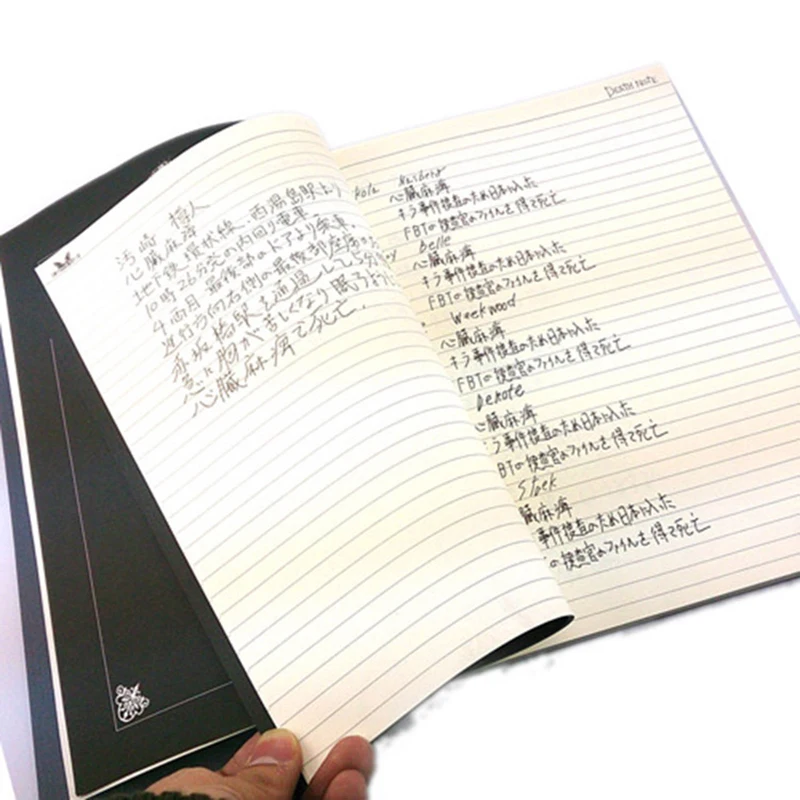 心臓麻痺
地下鉄 環状線、西湯島駅より
10時26分発の内回り電車
4両目 最後
進行方向右側の最後部座席
赤坂橋駅を通過して
急に胸が苦しくなり眠るように
心臓麻痺で死亡.
DEATH NOTE
心臓麻痺
キラ事件捜査のため日本に入った
FBIの捜査官のファイルを得て死亡
Belle
心臓麻痺
キラ事件捜査のため日本に入った
FBIの捜査官のファイルを得て死亡
Weekwood
心臓麻痺
キラ事件捜査のため日本に入った
FBIの捜査官のファイルを得て死亡
Denote
心臓麻痺
キラ事件捜査のため日本に入った
BIの捜査官のファイルを得て死亡
Stack
臓麻痺
事件捜査のため日本に入った
の捜査官のファイルを得て死亡